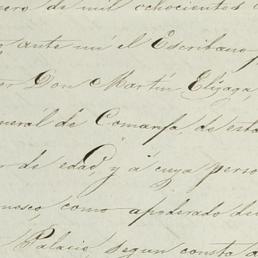 nero de mil ochocientos
ante mí el Escribano
Don Martín Elizaga,
neral de Comanfa de esta
de edad, y á cuya perso
nosco, como apoderado du
Palacio segun consta